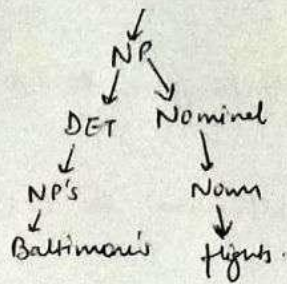 NP
DET Nominal
NP's Noun
Baltimore's flights.